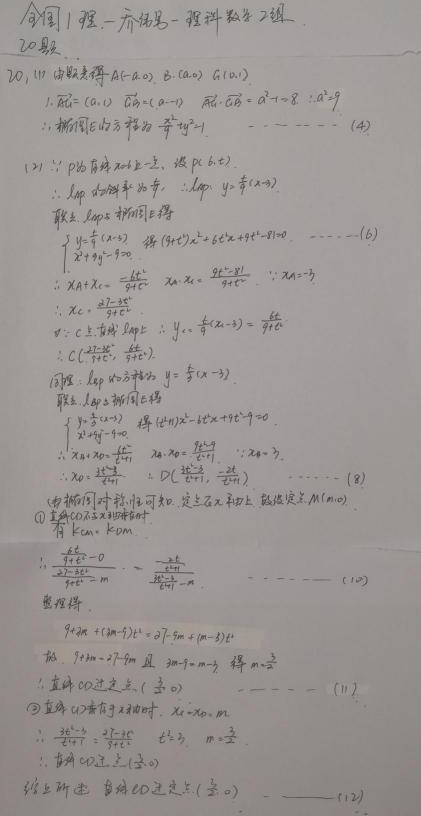 全国1理-乔伟民-理科数学2组
20题
20, (1) 由题意得 A(-a,0) B(a,0) G(0,1)
∴ AG=(a,1) GB=(a,-1) AG·GB=a²-1=8 ∴a²=9
∴椭圆E的方程为 x²/9+y²=1 ------- (4)
(2) ∵ P为直线x=6上一点, 设P(6,t)
∴ lAP的斜率为t/9, ∴lAP: y=t/9(x-3)
联立lAP与椭圆E得
{ y=t/9(x-3) x²+9y²-9=0 得(9+t²)x²+6t²x+9t²-81=0 ------(6)
∴ xA+xC=-6t²/9+t² xA·xC=9t²-81/9+t² ∵xA=-3
∴ xC=27-3t²/9+t²
又∵C点在直线lAP上 ∴ yC=t/9(xC-3)=6t/9+t²
∴C(27-3t²/9+t², 6t/9+t²)
同理: lBP的方程为 y=t/3(x-3)
联立lBP与椭圆E得
{ y=t/3(x-3) x²+9y²-9=0 得(t²+1)x²-6t²x+9t²-9=0
∴ xB+xD=6t²/t²+1 xB·xD=9t²-9/t²+1 ∵xB=3
∴xD=3t²-3/t²+1 ∴D(3t²-3/t²+1, -2t/t²+1) ------ (8)
(由椭圆对称性可知, 定点在x轴上, 故设定点M(m,0)
①直线CD不与x轴垂直时
有 kCM=kDM
∴ (6t/9+t² -0)/(27-3t²/9+t² -m) = (-2t/t²+1)/(3t²-3/t²+1 -m) ------- (10)
整理得
9+3m+(3m-9)t²=27-9m+(m-3)t²
故 9+3m=27-9m 且 3m-9=m-3 得m=3/2
∴直线CD过定点(3/2,0) ------ (11)
②直线CD垂直于x轴时, xC=xD=m
∴ 3t²-3/t²+1=27-3t²/9+t² t²=3 m=3/2
∴直线CD过点(3/2,0)
综上所述 直线CD过定点(3/2,0) ------(12)